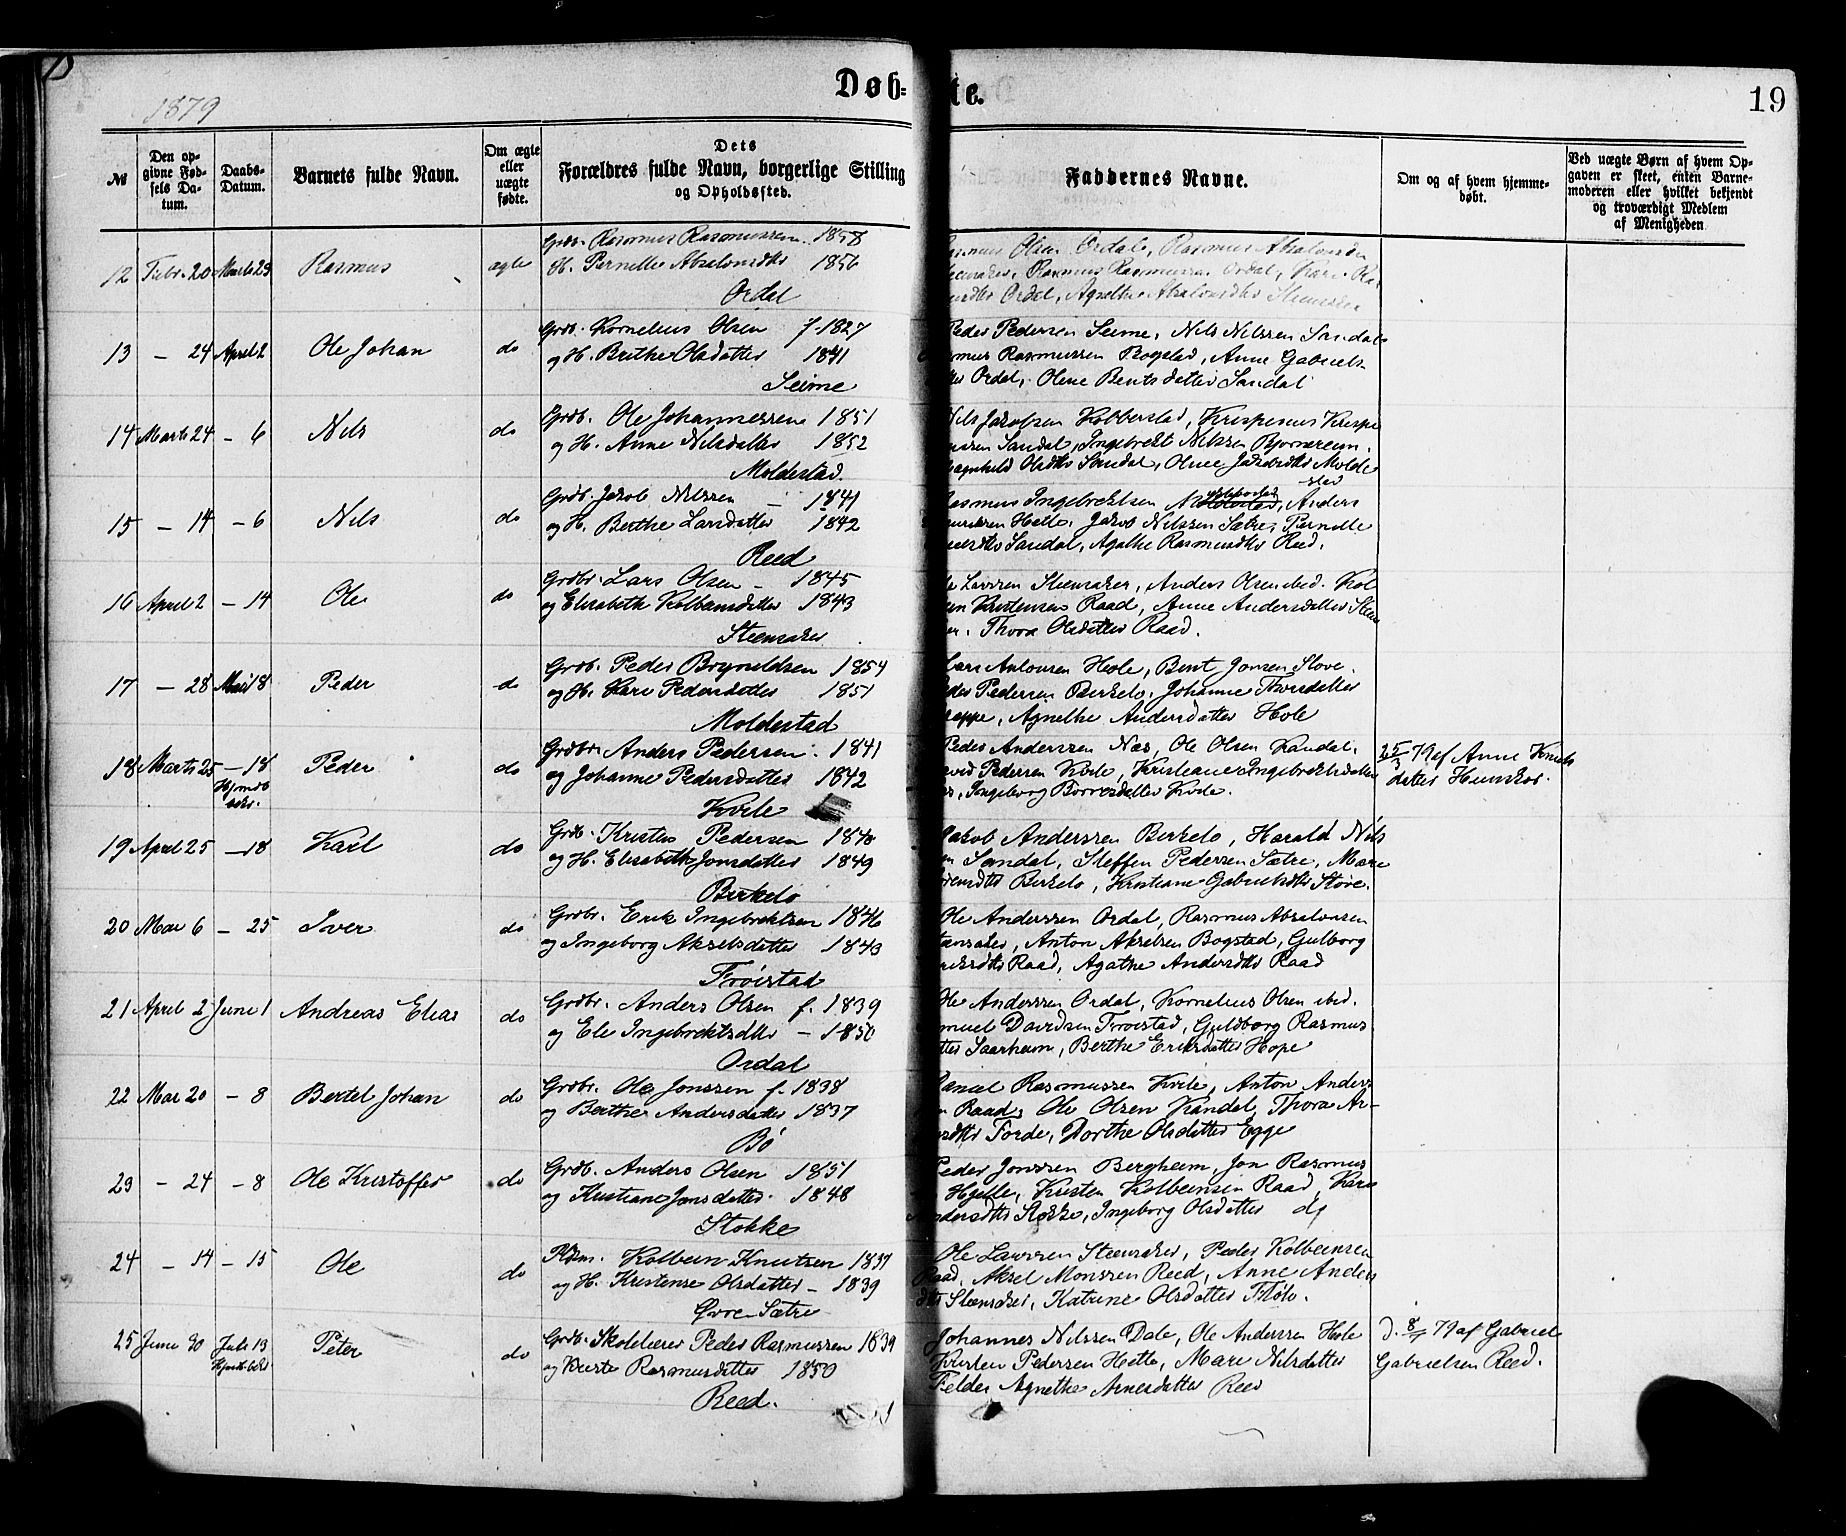 1879
Døb=
te.
19
№
Den op-
givne Fød-
sels Da-
tum.
Daabs-
Datum.
Barnets fulde Navn.
Om ægte
eller
uægte
fødte.
Dets
Forældres fulde Navn, borgerlige Stilling
og Opholdssted.
Faddernes Navne.
Om og af hvem hjemme-
døbt.
Ved uægte Børn af hvem Op-
gaven er skeet, enten Barne-
moderen eller hvilket bekjendt
og troværdigt Medlem
af Menigheden
12 Febr. 20 Marts 23 Rasmus ægte Grdb. Rasmus Rasmussen 1858
H. Pernille Absalonsdtr 1856
Ordal
Olsen Ordal, Rasmus Absalonsen
Rasmus Rasmussen Ordal,
Ordal, Agnethe Absalonsdtr
13 – 24 April 2 Ole Johan do Grdb. Kornelius Olsen f. 1827
og H. Berthe Olsdatter 1841
Seime
Peder Pedersen Seime, Nils Nilssen Sandal
Rasmussen Bogstad, Anne Gabriels-
Ordal, Oline Bentsdatter Sandal
14 Marts 24 – 6 Nils do Grdb. Ole Johannessen 1851
og H. Anne Nilsdatter 1852
Moldestad.
Nils Jakobsen Kobberstad, Krispinus Krispi
Sandal, Ingebrekt Nilssen Bjornereim.
Olsdtr Sandal, Oline Jakobsdtr Molde
stad
15 – 14 – 6 Nils do Grdb. Jakob Nilssen – 1841
og H. Berthe Larsdatter 1842
Reed
Rasmus Ingebrektsen Anders
Hetle, Jakob Nilssen Sætre, Pernille
Sandal, Agathe Rasmusdtr Reed.
16 April 2 – 14 Ole do Grdbr. Lars Olsen – 1845
og Elisabeth Kolbensdatter 1843
Steensaker
Larssen Steensaker, Anders Olsen ibid. Kol
Kristensen Raad, Anne Andersdatter Steen
Thora Olsdatter Raad.
17 – 28 Mai 18 Peder do Grdb. Peder Bryneldsen 1854
og H. Kari Pedersdatter 1851
Moldestad
Lars Antonsen Hole, Bent Jonsen Stove.
Pedersen Birkelo, Johanne Thorsdatter
Agnethe Andersdatter Hole
18 Marts 25 – 18 Peder do Grdbr. Anders Pedersen 1841
Hjmdb
bekr. og Johanne Pedersdatter 1842
Kvile
Peder Anderssen Nes, Ole Olsen Kandal,
Pedersen Kvile, Kristiane Ingebrektsdatter
Ingeborg Børresdatter Kvile.
25/3 79 af Anne Knuds
datter Hunskor.
19 April 25 – 18 Karl do Grdb. Kristen Pedersen 1840
og H. Elisabeth Jonsdatter 1849
Birkelo
Jakob Anderssen Birkelo, Harald Nils
Sandal, Steffen Pedersen Sætre, Mari
Birkelo, Kristiane Gabrielsdtr Stove.
20 Mai 6 – 25 Iver do Grdbr. Erik Ingebrektsen 1846
og Ingeborg Akselsdatter 1843
Frøistad
Ole Anderssen Ordal, Rasmus Absalonsen
Anton Akselsen Bogstad, Gulborg
Raad, Agathe Andersdtr Raad
21 April 2 Juni 1 Andreas Elias do Grdbr. Anders Olsen f. 1839
og Eli Ingebrektsdtr – 1850
Ordal
Ole Anderssen Ordal, Kornelius Olsen ibid.
Davidsen Frøistad, Guldborg Rasmus
Saarheim, Berthe Eriksdatter Hope
22 Mai 20 – 8 Bertel Johan do Grdbr. Ole Jonssen f. 1838
og Berthe Andersdatter 1837
Bö
Daniel Rasmussen Kvile, Anton Anders
Raad, Ole Olsen Kandal, Thora An-
Forde, Dorthe Olsdatter Egge
23 – 24 – 8 Ole Kristoffer do Grdb. Anders Olsen 1851
og Kristiane Jonsdatter. 1848
Stokke
Peder Jonssen Bergheim, Jon Rasmus
Hjelle, Kristen Kolbeensen Raad, Kari
Andersdtr Stokke, Ingeborg Olsdatter do
24 – 14 – 15 Ole do Pldsm. Kolbein Knutsen 1837
og H. Kristense Olsdatter – 1839
Øvre Sætre
Ole Larssen Steensaker, Peder Kolbeensen
Raad, Aksel Monssen Reed, Anne Anders
dtr Steensaker, Katrine Olsdatter Fløtre.
25 Juni 30 Juli 13 Peter do Grdb. Skolelærer Peder Rasmussen 1839
Hjmdb bekr og Kriste Rasmusdatter 1850
Reed.
Johannes Nilssen Dale, Ole Anderssen Hole
Kristen Pedersen Hetle, Mari Nilsdatter
Felde, Agnethe Arnesdatter Reed
d. 8/7 79 af Gabriel
Gabrielsen Reed.